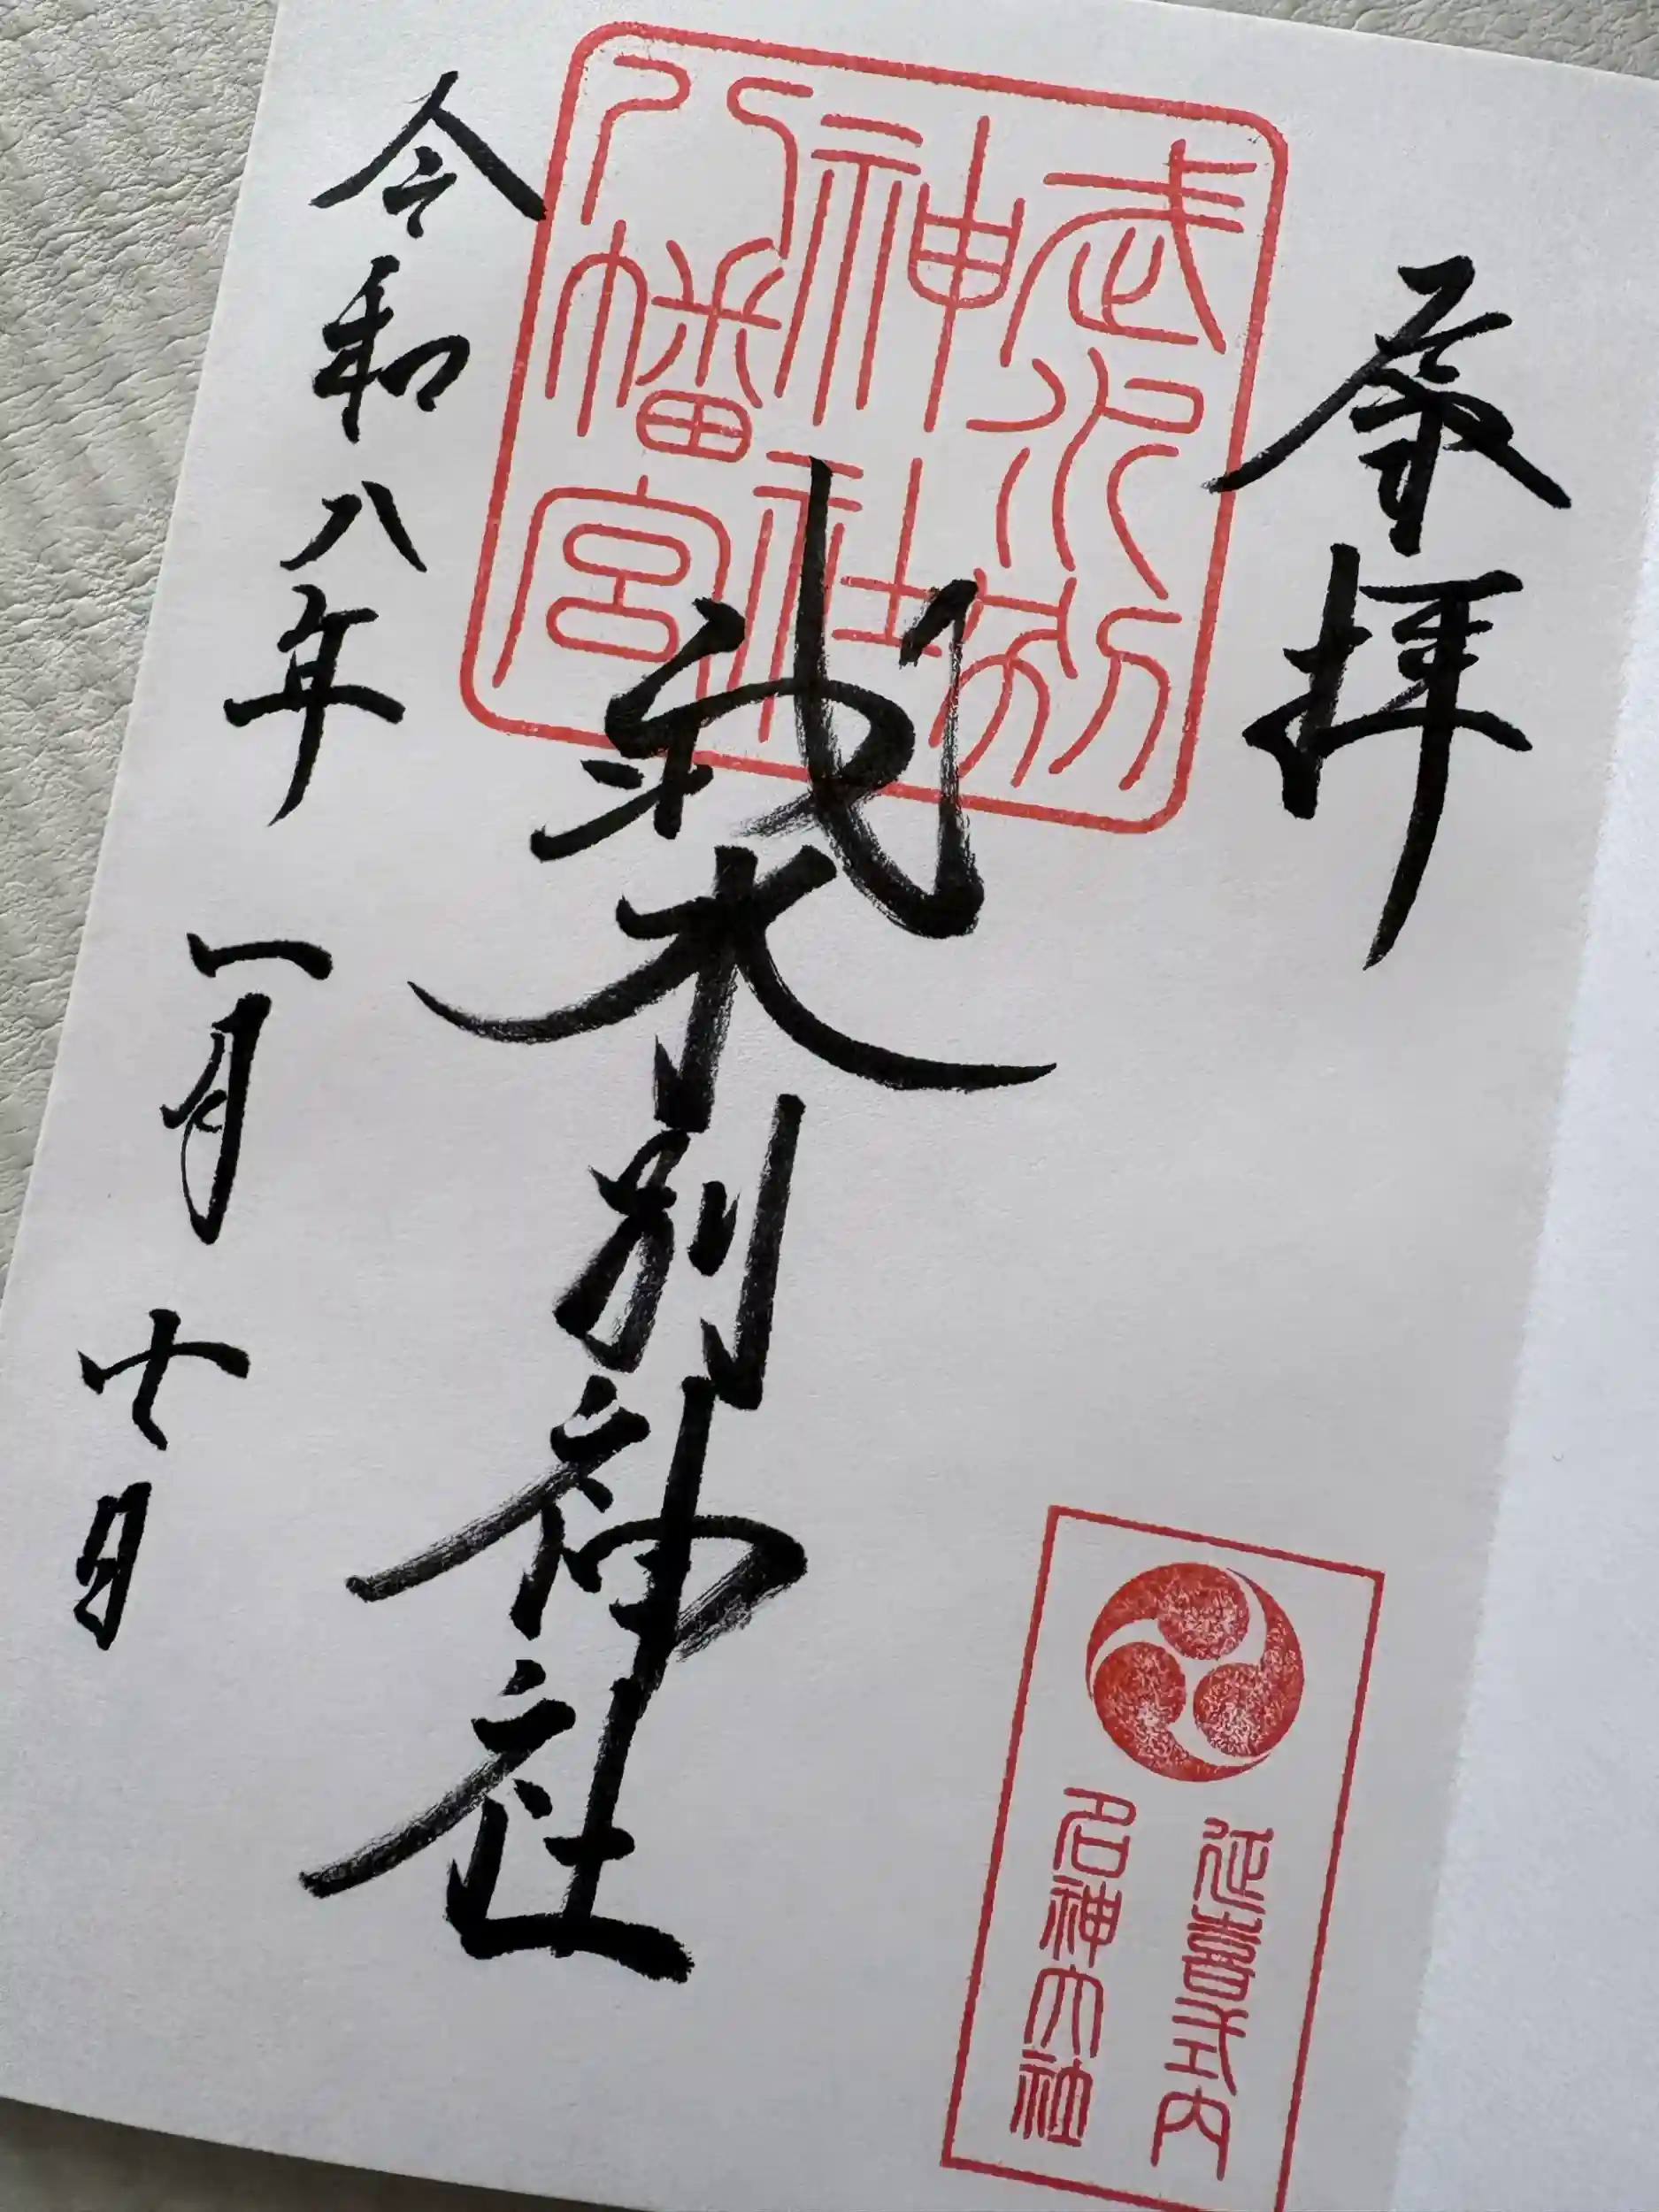 奉拝
武水別
神社
八幡宮
武水別神社
延喜式内
名神大社
令和八年一月十日